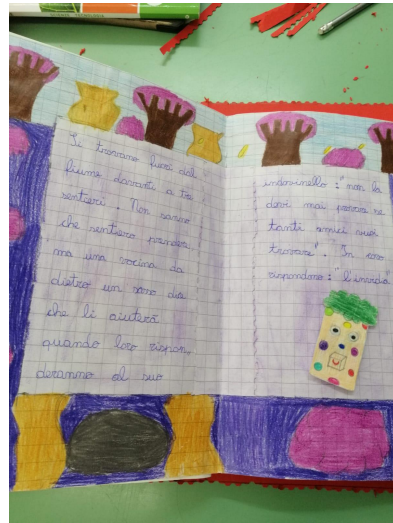 Si trovano fuori dal
fiume davanti a tre
sentieri. Non sanno
che sentiero prendere,
ma una vocina da
dietro un sasso dice
che li aiuterà
quando loro rispon,
deranno al suo
indovinello: "non la
devi mai provare se
tanti amici vuoi
trovare". In coro
rispondono: "l'invidia"